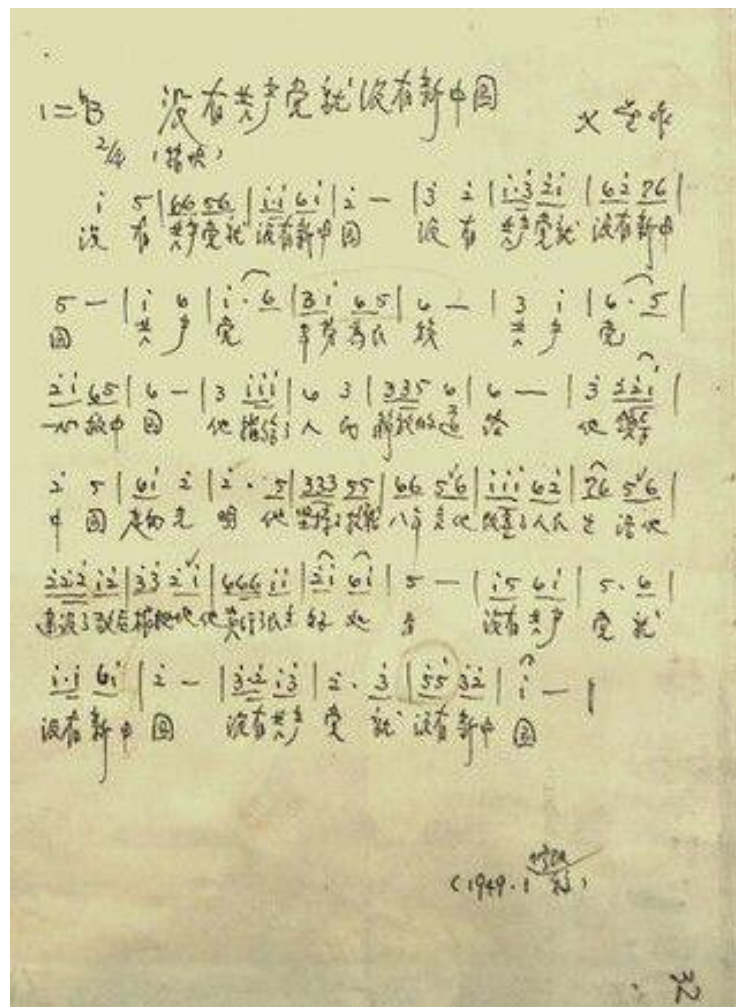 1=♭B 没有共产党就没有新中国
2/4 (稍快)
i̇ 5 | 66 56 | i̇·i̇ 6i̇ | 2̇ — | 3̇ 2̇ | i̇·3̇ 2̇i̇ | 62̇ 76 |
没 有 共产党就 没有新中 国 没 有 共产党就 没有新中
5 — | i̇ 6 | i̇·6 | 3i̇ 65 | 6 — | 3 i̇ | 6·5 |
国 共 产 党 辛劳为民族 共 产 党
2̇i̇ 65 | 6 — | 3 i̇i̇i̇ | 6 3 | 335 6 | 6 — | 3̇ 2̇2̇i̇ |
一心救中 国 他指给了人 的 解放的道 路 他 领导
2̇ 5 | 6i̇ 2̇ | 2̇·5 | 333 55 | 66 56 | i̇i̇i̇ 62̇ | 76 56 |
中 国 走向光 明 他坚持了抗战八年多他改善了人民生 活他
2̇2̇2̇ i̇2̇ | 3̇3̇ 2̇i̇ | 666 i̇i̇ | 2̇i̇ 6i̇ | 5 — | i̇5 6i̇ | 5·6 |
建设了敌后根据地他实行了民主好处 多 没有共产 党 就
i̇·i̇ 6i̇ | 2̇ — | 3̇·2̇ i̇3̇ | 2̇·3̇ | 5̇5̇ 3̇2̇ | i̇ — |
没有新中 国 没有共产 党 就 没有新中 国
(1949.1 )
32